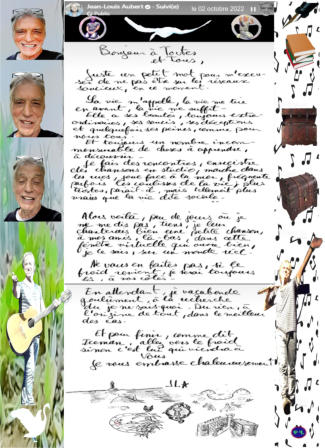 Jean-Louis Aubert • Suivi(e)
le 02 octobre 2022
Bonjour à Toutes
et Tous,
Juste un petit mot pour m'excu-
ser de ne pas être sur les réseaux
sociaux, en ce moment.
La vie m'appelle, la vie me tire
en avant, la vie me suffit.
Elle a ses beautés, toujours extra-
ordinaires, ses soucis, ses déceptions
et quelquefois ses peines, comme pour
nous tous.
Et toujours un nombre incom-
mensurable de choses à apprendre, à
découvrir...
Je fais des rencontres, enregistre
des chansons en studio, marche dans
les rues, joue face à la mer, fréquente
parfois les coulisses de la vie, plus
vaste, mais tellement plus
vraie que la vie dite sociale.
Alors voilà, peu de jours où je
ne me dis pas, tiens, je leur
chanterais bien une petite chanson,
à mes amis, là bas, dans cette
fenêtre virtuelle qui ouvre, bien
je le sais, sur un monde réel.
Ne vous en faites pas, si le
froid revient, je serai toujours
là, à vos côtés.
En attendant, je vagabonde
goulûment, à la recherche
de je ne sais quoi. Du rien, à
l'origine de tout, dans le meilleur
des cas.
Et pour finir, comme dit
Iceman, allez vers le froid
sinon c'est lui qui viendra à
Vous
Je vous embrasse chaleureusement
J.L.A